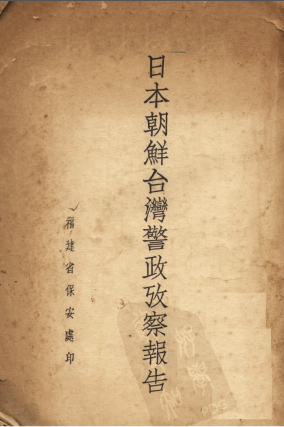 日本朝鮮台灣警政攷察報告
福建省保安處印